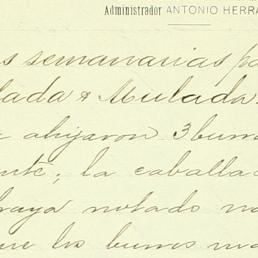 Administrador ANTONIO HERRA
s semanarias pa
lada & Mulada.
a ahijaron 3 burra
nte; la caballad
haya notado no
ue los burros ma